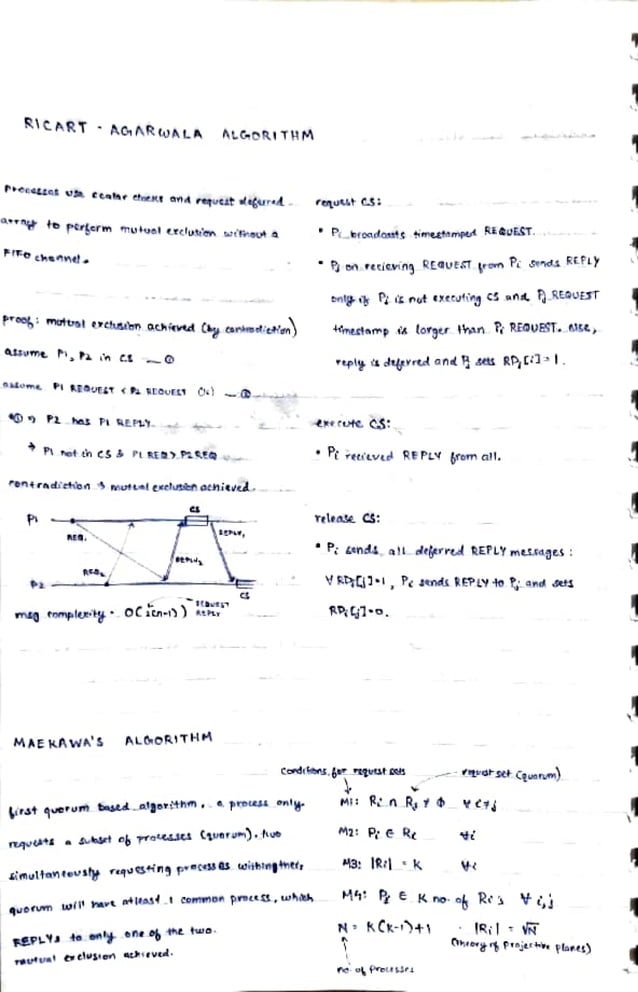 RICART - AGARWALA ALGORITHM
Processes use scalar clocks and request deferred
array to perform mutual exclution without a
FIFO channel.
proof: mutual exclution achieved (by contradiction)
assume P1, P2 in CS — ①
assume P1 REQUEST < P2 REQUEST — ②
① ⇒ P2 has P1 REPLY.
→ P1 not in CS & P1 REQ > P2 REQ
contradiction → mutual exclution achieved.
P1
CS
REQ1
REQ2
REPLY2
REPLY1
P2
CS
msg complexity = O(2(n-1))
REQUEST
REPLY
request CS:
• Pi broadcasts timestamped REQUEST.
• Pj on recieving REQUEST from Pi sends REPLY
only if Pj is not executing CS and Pj REQUEST
timestamp is larger than Pi REQUEST. else,
reply is deferred and Pj sets RDj[i]=1.
execute CS:
• Pi recieved REPLY from all.
release CS:
• Pi sends all deferred REPLY messages:
∀ RDi[j]=1, Pi sends REPLY to Pj and sets
RDi[j]=0.
MAEKAWA'S ALGORITHM
first quorum based algorithm. a process only
requests a subset of processes (quorum). two
simultaneously requesting processes
quorum will have atleast 1 common process, which
REPLYs to only one of the two.
mutual exclution achieved.
conditions for request sets
request set (quorum)
M1: Ri ∩ Rj ≠ Φ ∀ i≠j
M2: Pi ∈ Ri ∀i
M3: |Ri| = K ∀i
M4: Pj ∈ K no. of Ri's ∀ i,j
N = K(K-1)+1 · |Ri| = √N
(theory of projective planes)
no. of processes